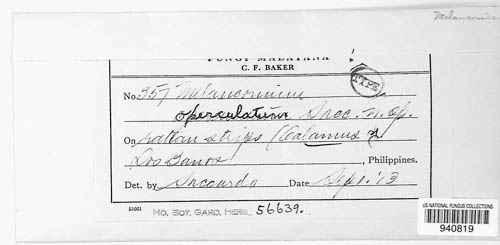 Melanconium
FUNGI MALAYANA
C. F. BAKER
TYPE
No. 357 Melanconium
operculatum Sacc. n. sp.
On rattan strips (Calamus)
Los Banos, Philippines.
Det. by Saccardo Date Sept. '13
MO. BOT. GARD. HERB. 56639.
US NATIONAL FUNGUS COLLECTIONS
940819